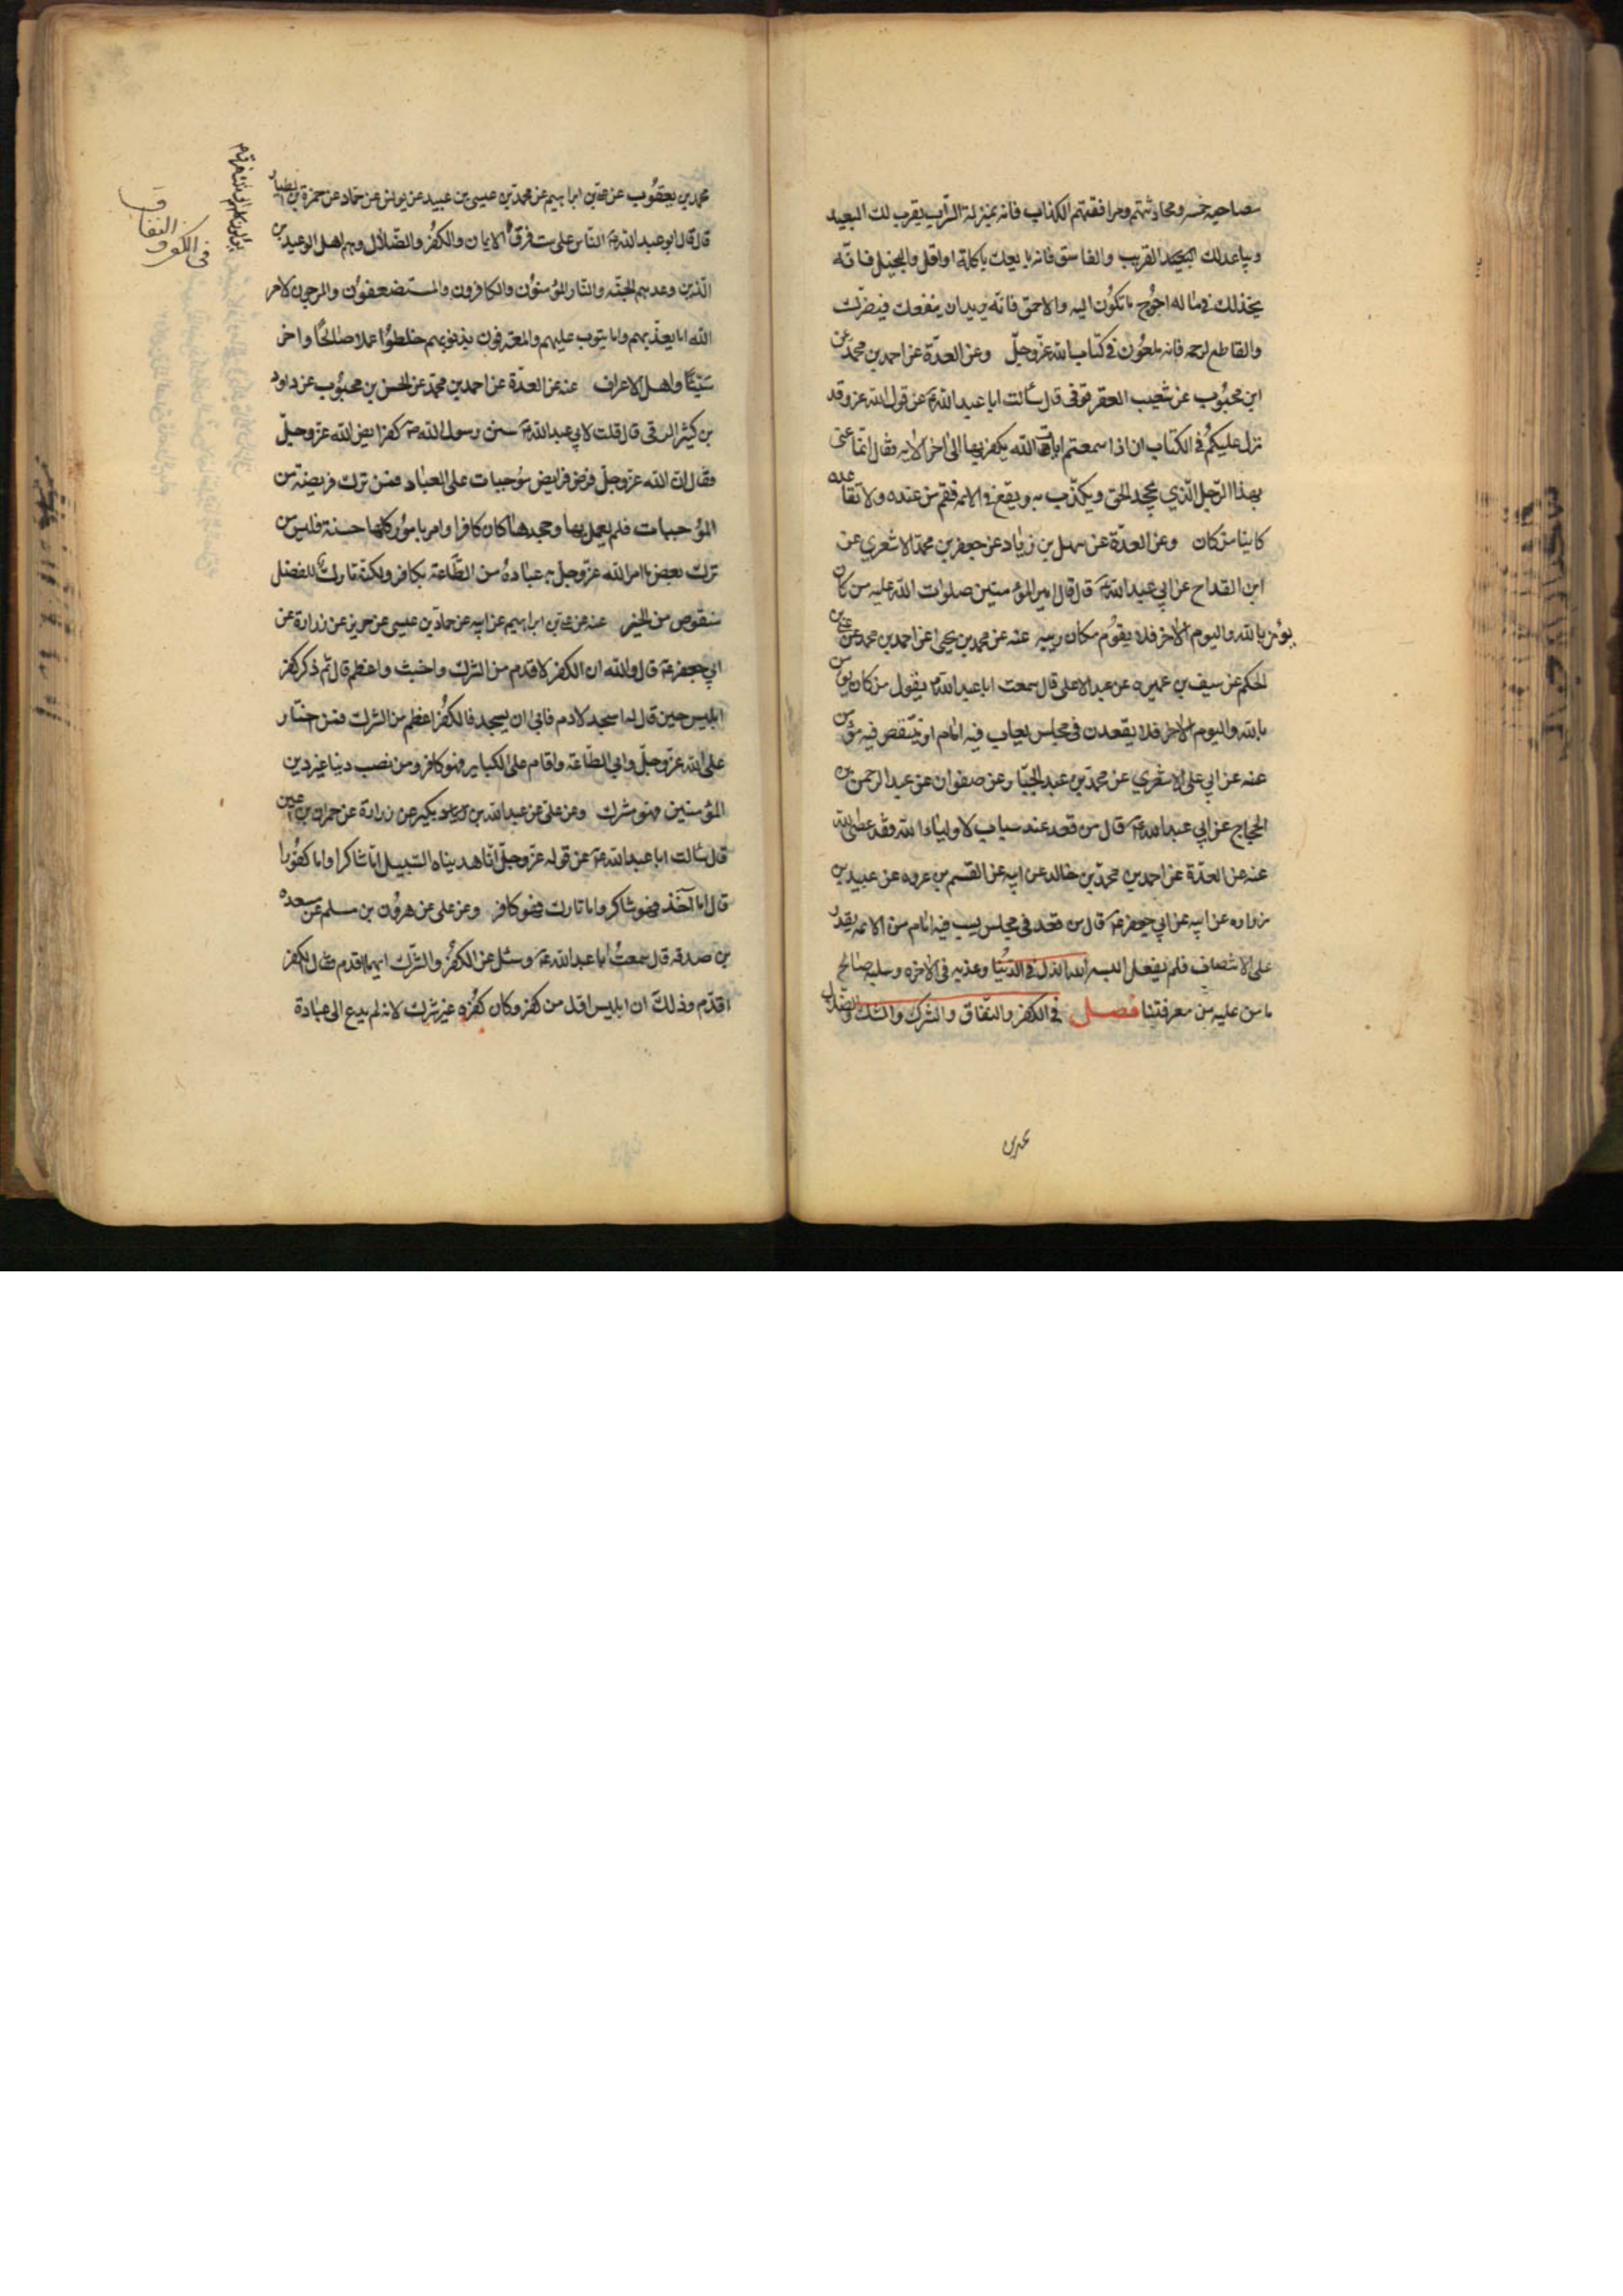 مصاحبه خسه ومحادثتهم ومرافقتهم الكذاب فانه بمنزلة السراب يقرب لك البعيد
ويباعد لك القريب والفاسق فانه بايعك باكلة او اقل والبخيل فانه
يخذلك في ماله احوج ما تكون اليه والاحمق فانه يريد ان ينفعك فيضرك
والقاطع لرحمه فانه ملعون في كتاب الله عز وجل وعن العدة عن احمد بن محمد عن
ابن محبوب عن شعيب العقرقوفي قال سألت ابا عبد الله ع عن قول الله عز وقد
نزل عليكم في الكتاب ان اذا سمعتم ايات الله يكفر بها الى اخر الاية فقال انما عنى
بهذا الرجل الذي يجحد الحق ويكذب به ويقع في الائمة فقم من عنده ولا تقاعده
كاينا من كان وعن العدة عن سهل بن زياد عن جعفر بن محمد الاشعري عن
ابن القداح عن ابي عبد الله ع قال قال امير المؤمنين صلوات الله عليه من كان
يؤمن بالله واليوم الاخر فلا يقوم مكان ريبه عنه عن محمد بن يحيى عن احمد بن محمد عن علي بن
الحكم عن سيف بن عميره عن عبد الاعلى قال سمعت ابا عبد الله ع يقول من كان يؤمن
بالله واليوم الاخر فلا يقعدن في مجلس يعاب فيه امام او ينتقص فيه مؤمن
عنه عن ابي علي الاشعري عن محمد بن عبد الجبار عن صفوان عن عبد الرحمن بن
الحجاج عن ابي عبد الله ع قال من قعد عند سباب لاولياء الله فقد عصى الله
عنه عن العدة عن احمد بن محمد بن خالد عن ابيه عن القسم بن عروه عن عبيد بن
زراره عن ابيه عن ابي جعفر ع قال من قعد في مجلس يسب فيه امام من الائمه يقدر
على الانتصاف فلم يفعل البسه الله الذل في الدنيا وعذبه في الاخره وسلبه صالح
ما من عليه من معرفتنا فصل في الكفر والنفاق والشرك والشك والضلال
محمد بن
محمد بن يعقوب عن علي بن ابراهيم عن محمد بن عيسى بن عبيد عن يونس عن حماد عن حمزة بن الطيار
قال قال ابو عبد الله ع الناس على ست فرق الايمان والكفر والضلال وهم اهل الوعيدين
الذين وعدهم الجنه والنار المؤمنون والكافرون والمستضعفون والمرجون لامر
الله اما يعذبهم واما يتوب عليهم والمعترفون بذنوبهم خلطوا عملا صالحا واخر
سيئا واهل الاعراف عنه عن العدة عن احمد بن محمد عن الحسن بن محبوب عن داود
بن كثير الرقي قال قلت لابي عبد الله ع سنن رسول الله ص كفرايض الله عز وجل
فقال ان الله عز وجل فرض فرايض موجبات على العباد فمن ترك فريضة من
الموجبات فلم يعمل بها وجحدها كان كافرا وامر بامور كلها حسنة فليس من
ترك بعض ما امر الله عز وجل به عباده من الطاعة بكافر ولكنه تارك للفضل
منقوص من الخير عنه عن علي بن ابراهيم عن ابيه عن حماد بن عيسى عن حريز عن زرارة عن
ابي جعفر ع قال والله ان الكفر لاقدم من الشرك واخبث واعظم قال ثم ذكر كفر
ابليس حين قال له اسجد لادم فابى ان يسجد فالكفر اعظم من الشرك فمن اختار
على الله عز وجل وابى الطاعة واقام على الكباير فهو كافر ومن نصب دينا غير دين
المؤمنين فهو مشرك وعن علي عن عبد الله بن بكير عن زرارة عن حمران بن اعين
قال سألت ابا عبد الله ع عن قوله عز وجل انا هديناه السبيل اما شاكرا واما كفورا
قال اما آخذ فهو شاكر واما تارك فهو كافر وعن علي عن هرون بن مسلم عن مسعده
بن صدقه قال سمعت ابا عبد الله ع وسئل عن الكفر والشرك ايهما اقدم فقال الكفر
اقدم وذلك ان ابليس اول من كفر وكان كفره غير شرك لانه لم يدع الى عبادة
في الكفر و النفاق